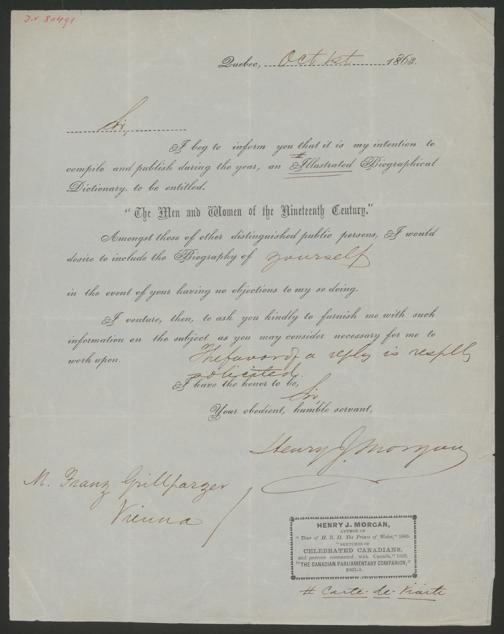 I.N. 80491
Quebec, Oct 1st 1863.
Sir,
I beg to inform you that it is my intention to
compile and publish during the year, an # Illustrated Biographical
Dictionary, to be entitled.
"The Men and Women of the Nineteenth Century."
Amongst those of other distinguished public persons, I would
desire to include the Biography of yourself
in the event of your having no objections to my so doing.
I venture, then, to ask you kindly to furnish me with such
information on the subject as you may consider necessary for me to
work upon. The favor of a reply is respflly
solicited.
I have the honor to be,
Sir,
Your obedient, humble servant,
Henry J. Morgan
M. Franz Grillparzer
Vienna
HENRY J. MORGAN,
AUTHOR OF
"Tour of H. R. H. The Prince of Wales," 1860.
"SKETCHES OF
CELEBRATED CANADIANS,
and persons connected with Canada," 1862.
"THE CANADIAN PARLIAMENTARY COMPANION,"
# Carte de Visite